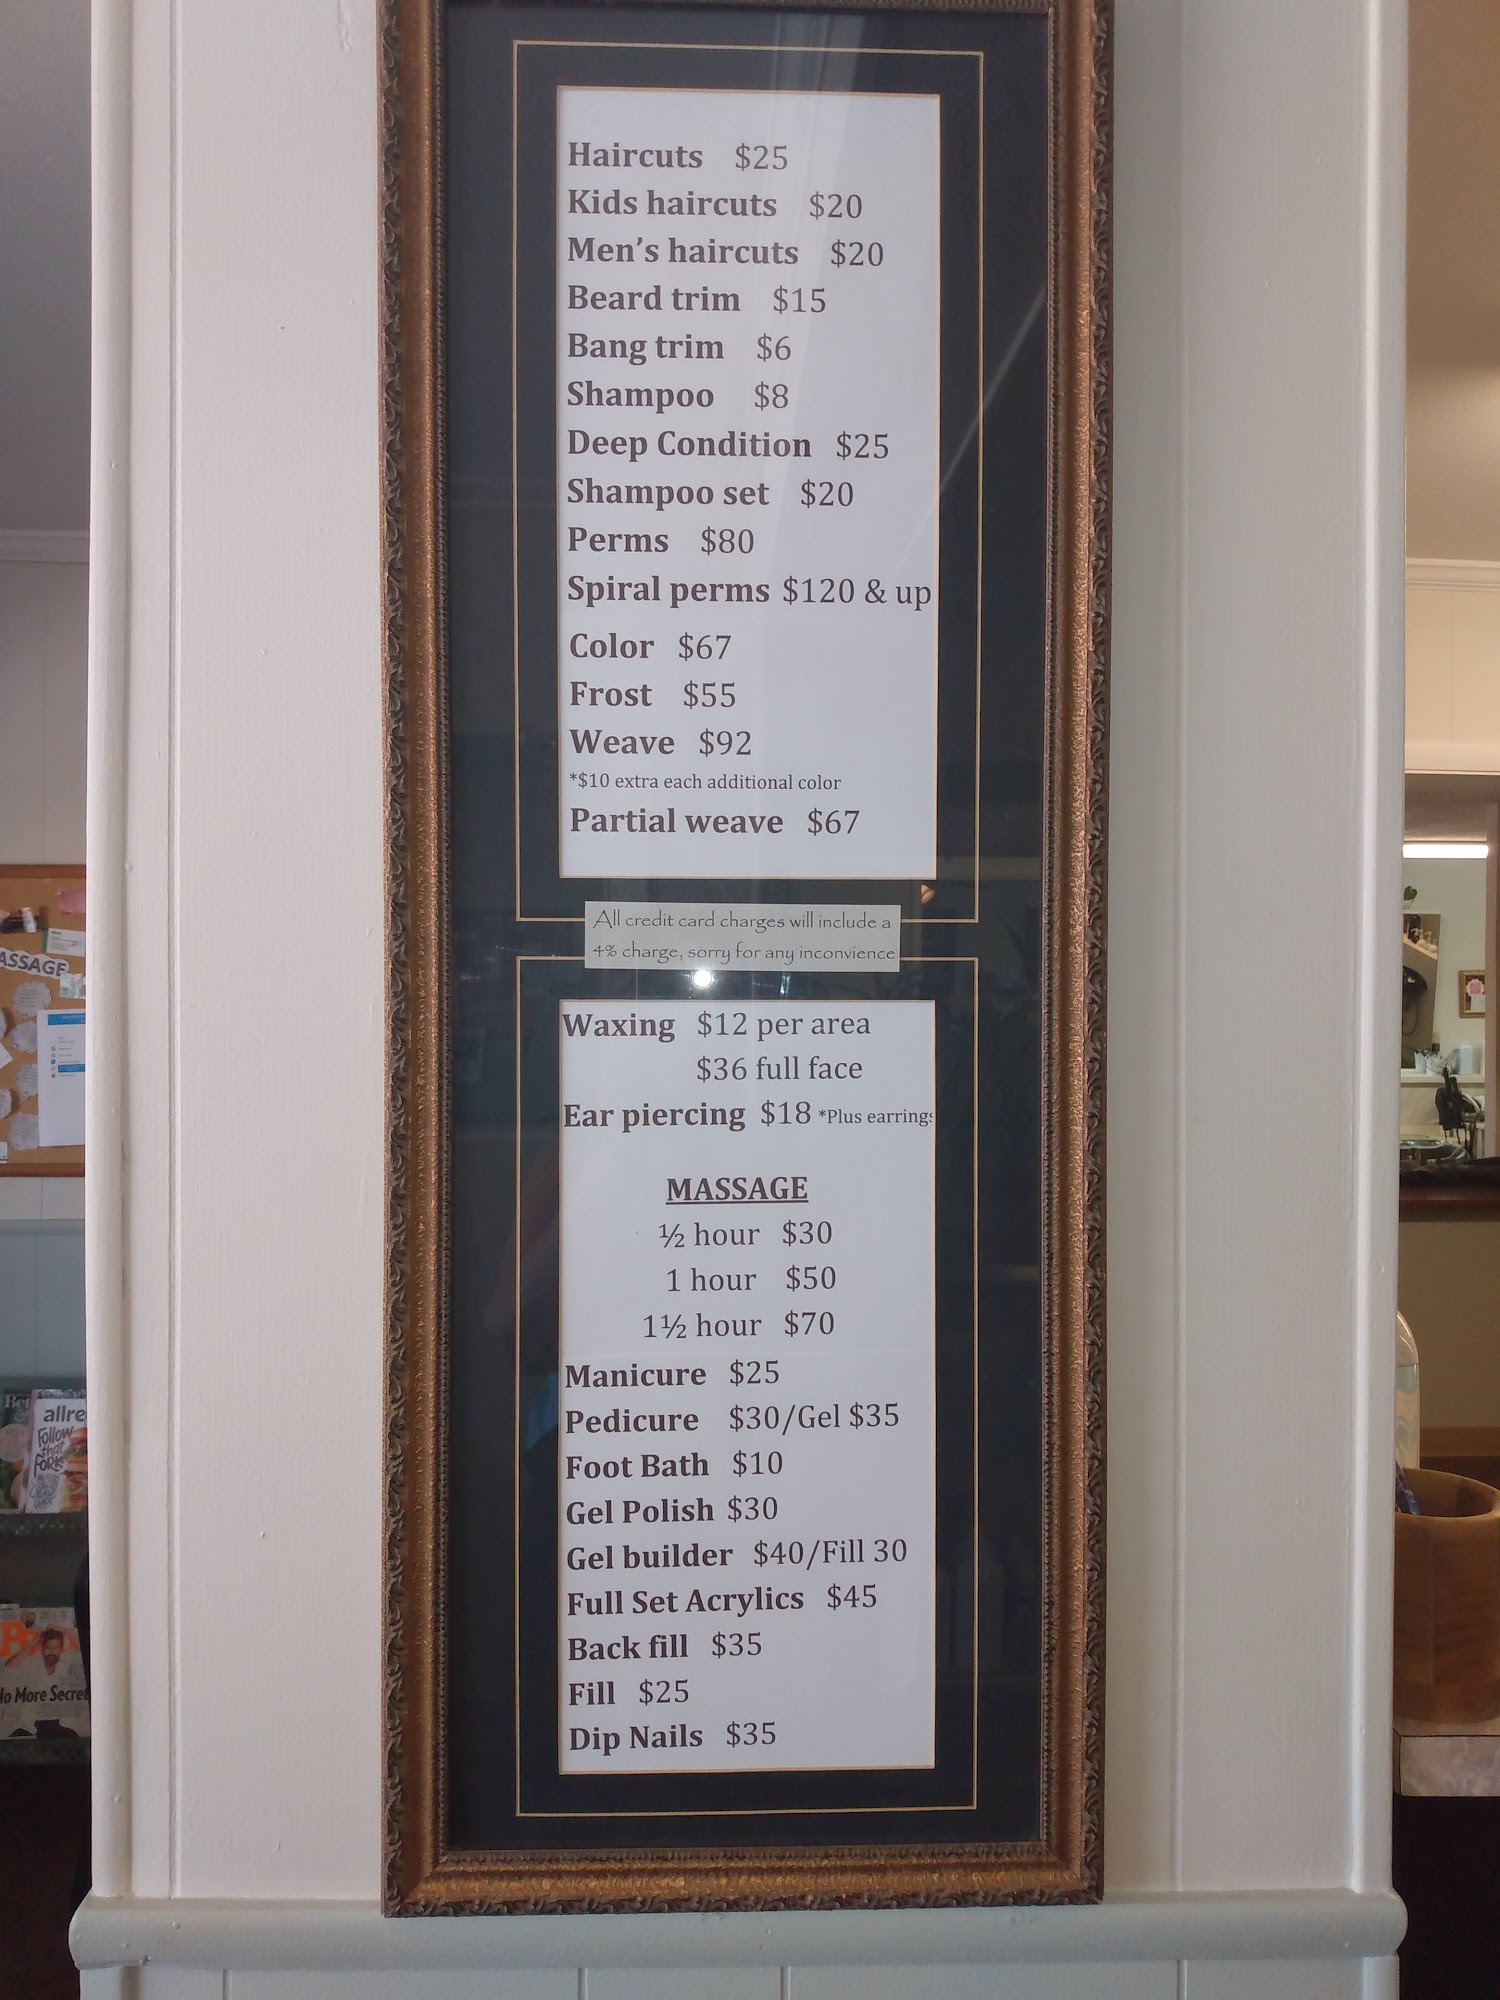 Haircuts $25
Kids haircuts $20
Men's haircuts $20
Beard trim $15
Bang trim $6
Shampoo $8
Deep Condition $25
Shampoo set $20
Perms $80
Spiral perms $120 & up
Color $67
Frost $55
Weave $92
*$10 extra each additional color
Partial weave $67
All credit card charges will include a
4% charge, sorry for any inconvience
Waxing $12 per area
$36 full face
Ear piercing $18 *Plus earrings
MASSAGE
½ hour $30
1 hour $50
1½ hour $70
Manicure $25
Pedicure $30/Gel $35
Foot Bath $10
Gel Polish $30
Gel builder $40/Fill 30
Full Set Acrylics $45
Back fill $35
Fill $25
Dip Nails $35
ASSAGE
allre
Follow
that
FORK
No More Secret